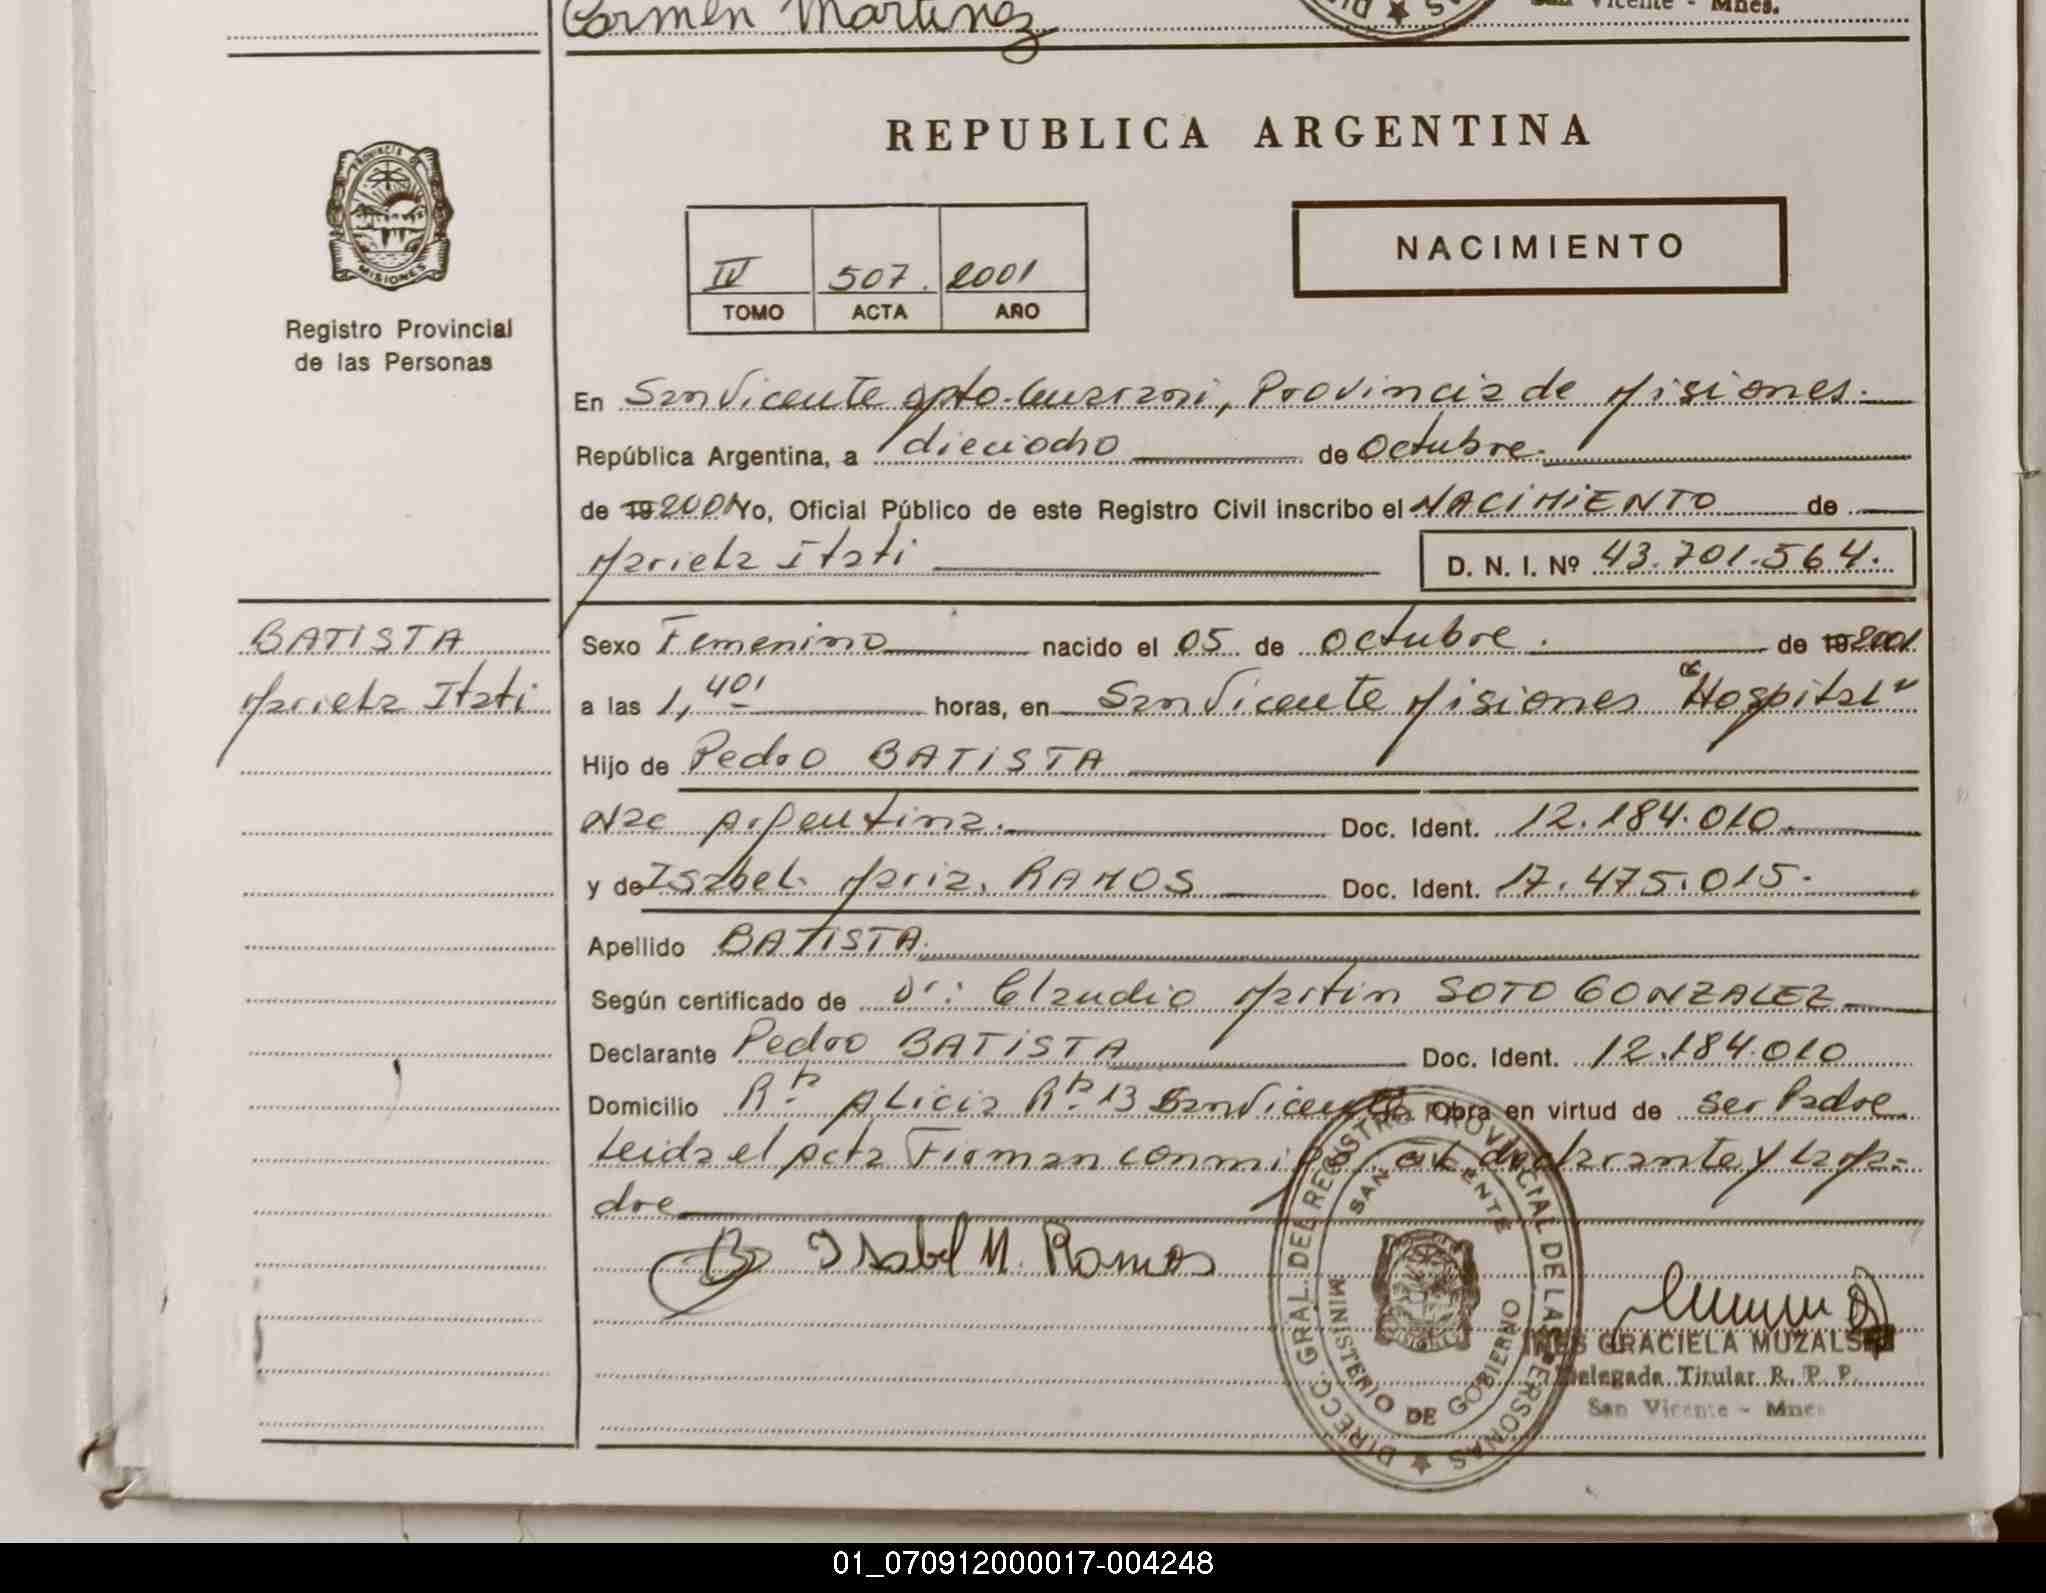 Carmen Martinez
San Vicente - Mnes.
REPUBLICA ARGENTINA
PROVINCIA DE
MISIONES
Registro Provincial
de las Personas
IV 507. 2001
TOMO ACTA AÑO
NACIMIENTO
En San Vicente Dpto. Guarani, Provincia de Misiones.
República Argentina, a dieciocho de Octubre.
de 19 2001 Yo, Oficial Público de este Registro Civil inscribo el NACIMIENTO de
Mariela Itati D. N. I. Nº 43.701.564.
BATISTA
Mariela Itati
Sexo Femenino nacido el 05 de octubre. de 19 2001
a las 1,40' horas, en San Vicente Misiones "Hospital"
Hijo de Pedro BATISTA
Nac Argentina. Doc. Ident. 12.184.010.
y de Isabel Maria RAMOS Doc. Ident. 17.475.015.
Apellido BATISTA.
Según certificado de Dr: Claudio Martin SOTO GONZALEZ
Declarante Pedro BATISTA Doc. Ident. 12.184.010
Domicilio Rta. Alicia Rta. 13 San Vicente Obra en virtud de ser Padre
Leida el Acta Firman conmigo el declarante y la Ma-
dre
B Isabel M. Ramos
DIRECC. GRAL. DEL REGISTRO PROVINCIAL DE LAS PERSONAS
SAN VICENTE
MINISTERIO DE GOBIERNO
INES GRACIELA MUZALSKI
Delegada Titular R. P. P.
San Vicente - Mnes
01_070912000017-004248